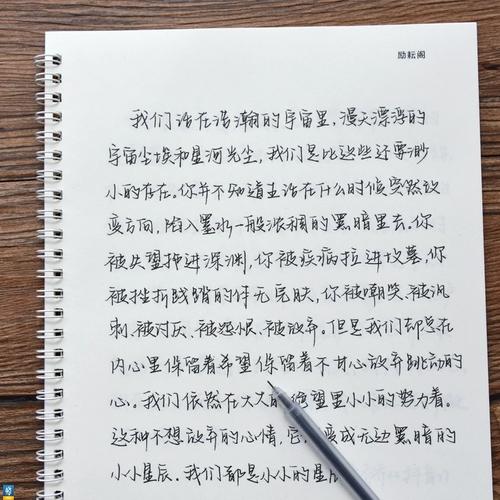 励耘阁
我们活在浩瀚的宇宙里，漫天漂浮的
宇宙尘埃和星河光尘，我们是比这些还要渺
小的存在。你并不知道生活在什么时候突然改
变方向，陷入墨水一般浓稠的黑暗里去。你
被失望拽进深渊，你被疾病拉进坟墓，你
被挫折践踏的体无完肤，你被嘲笑、被讽
刺、被讨厌、被怨恨、被放弃。但是我们却总在
内心里保留着希望保留着不甘心放弃跳动的
心。我们依然在大大的绝望里小小的努力着。
这种不想放弃的心情，它变成无边黑暗的
小小星辰。我们都是小小的星